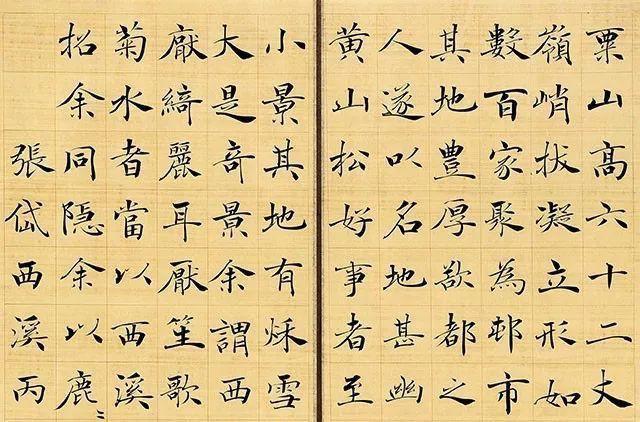 粟山高六十二丈
嶺峭拔凝立形如
數百家聚為邨市
其地豐厚欲都之
人遂以名地甚幽
黄山松好事者至
小景其地有秌雪
大是奇景余謂西
厭綺麗耳厭笙歌
菊水者當以西溪
招余同隱余以鹿
張岱西溪丙